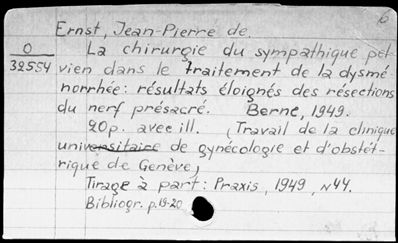 6
Ernst, Jean-Pierre de.
O
32554
La chirurgie du sympathique pel-
vien dans le traitement de la dysmé-
norrhée: résultats éloignés des résections
du nerf présacré. Berne, 1949.
20p. avec ill. (Travail de la clinique
universitaire de gynécologie et d'obstét-
rique de Genève)
Tirage à part: Praxis, 1949, N44.
Bibliogr. p. 19-20